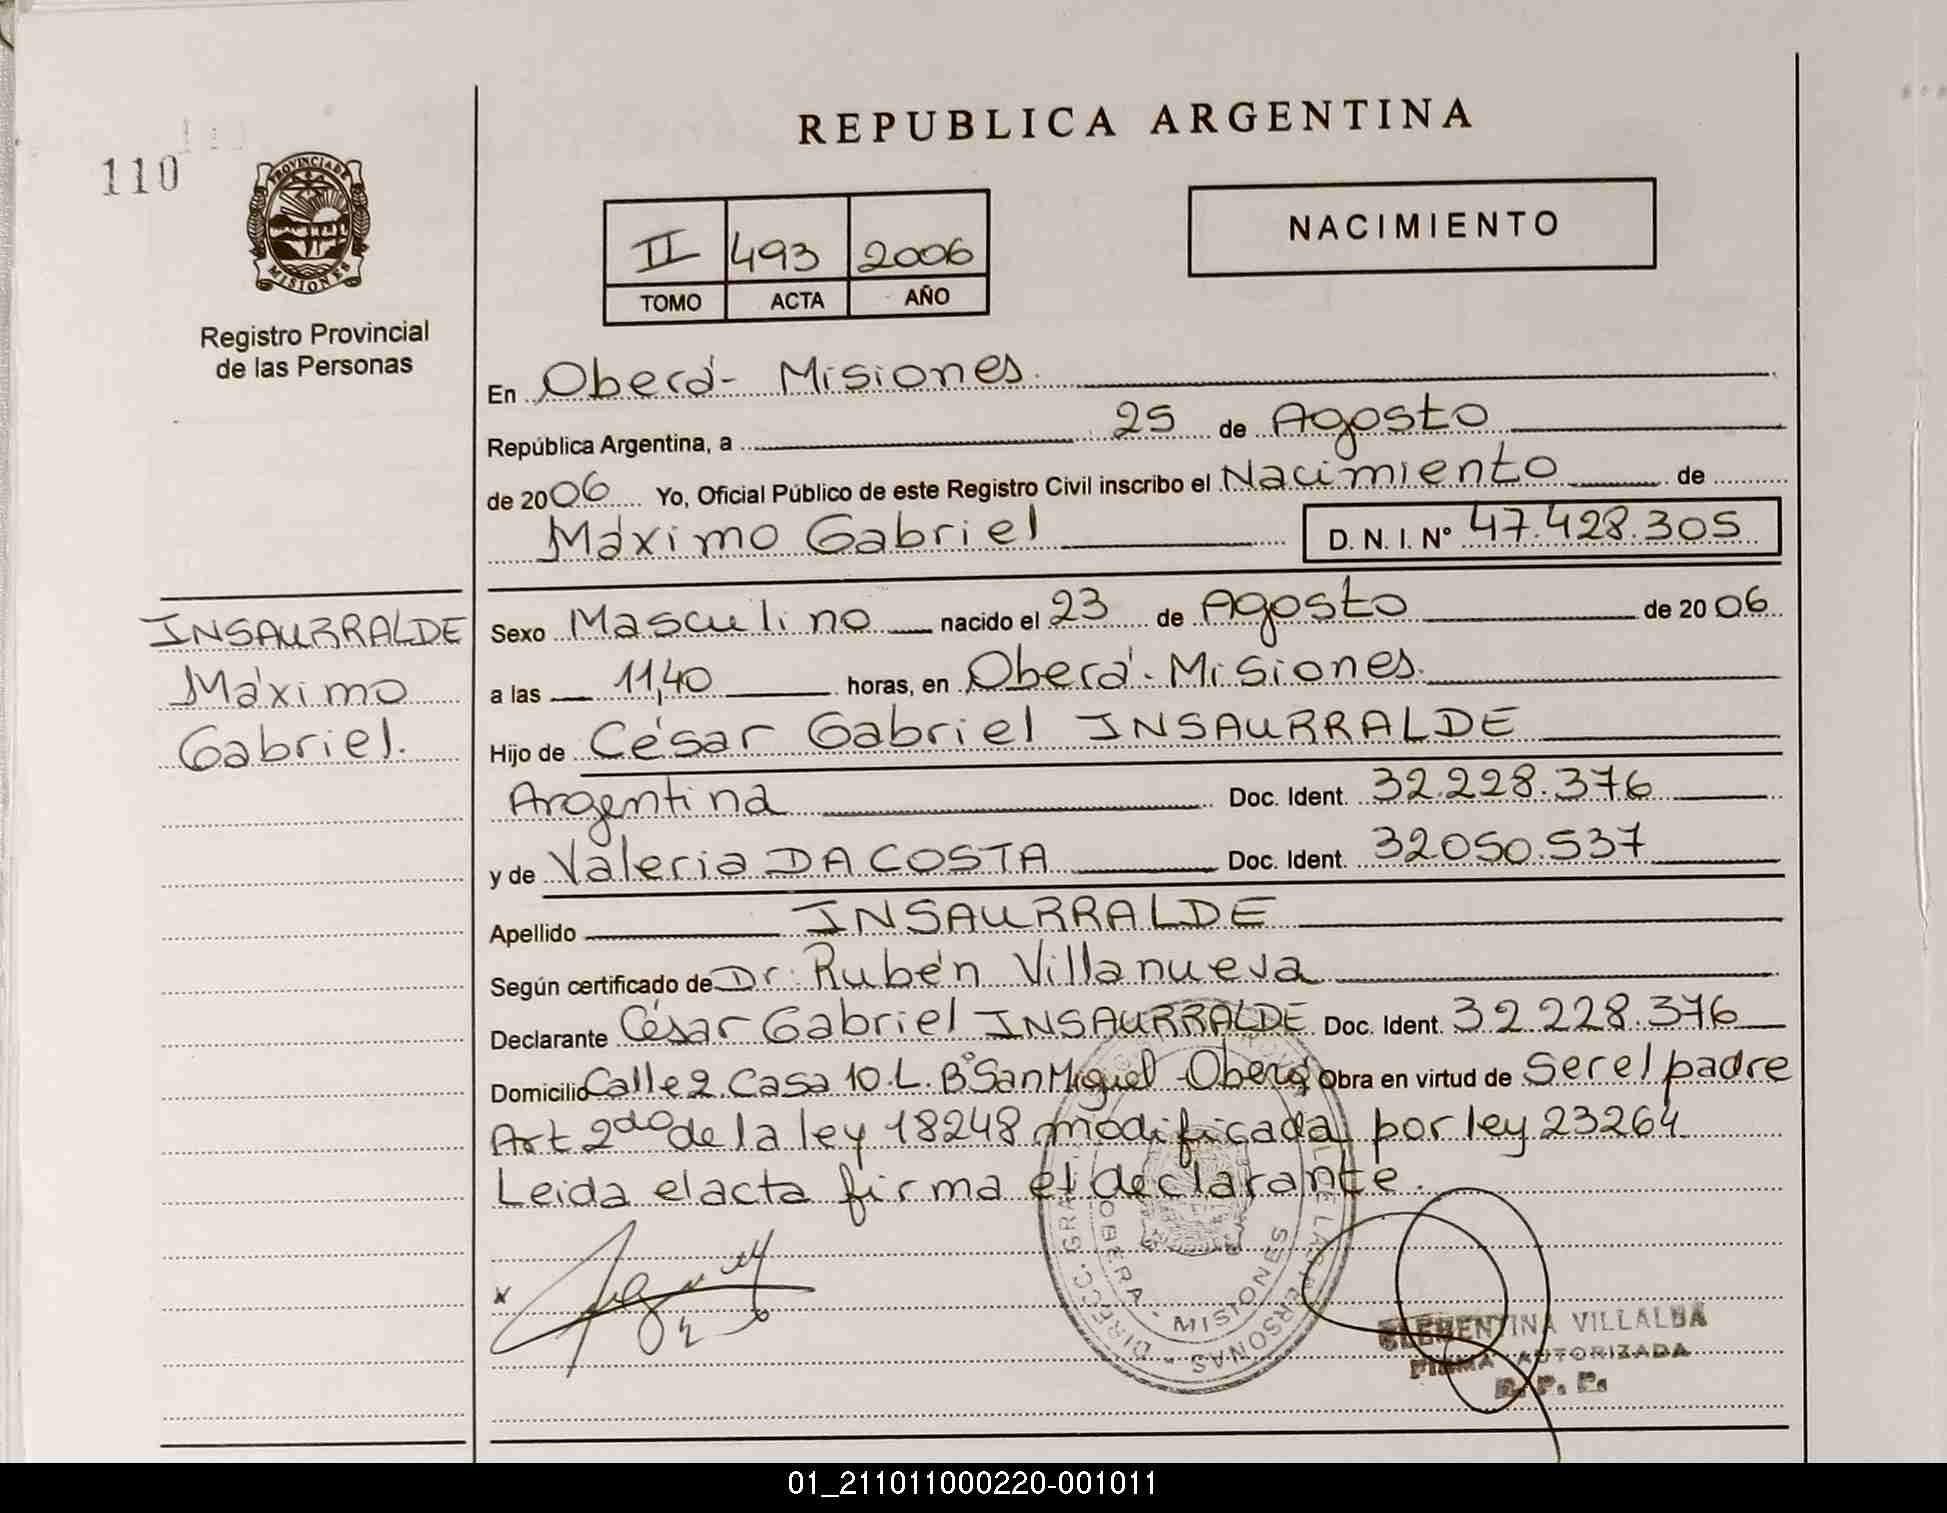 REPUBLICA ARGENTINA
110
PROVINCIA DE
MISIONES
Registro Provincial
de las Personas
II 493 2006
TOMO ACTA AÑO
NACIMIENTO
En Oberá - Misiones.
República Argentina, a 25 de Agosto
de 2006 Yo, Oficial Público de este Registro Civil inscribo el Nacimiento de
Máximo Gabriel D. N. I. Nº 47.428.305
INSAURRALDE
Máximo
Gabriel.
Sexo Masculino nacido el 23 de Agosto de 2006
a las 11,40 horas, en Oberá - Misiones.
Hijo de César Gabriel INSAURRALDE
Argentina Doc. Ident. 32.228.376
y de Valeria DA COSTA Doc. Ident. 32050.537
Apellido INSAURRALDE
Según certificado de Dr. Rubén Villanueva
Declarante César Gabriel INSAURRALDE Doc. Ident. 32.228.376
Domicilio Calle 2. Casa 10. L. Bº San Miguel - Oberá Obra en virtud de Ser el padre
Art 2do de la ley 18248 modificada por ley 23264
Leida el acta firma el declarante.
OBERA - MISIONES
CLEMENTINA VILLALBA
FIRMA AUTORIZADA
R. P. P.
01_211011000220-001011